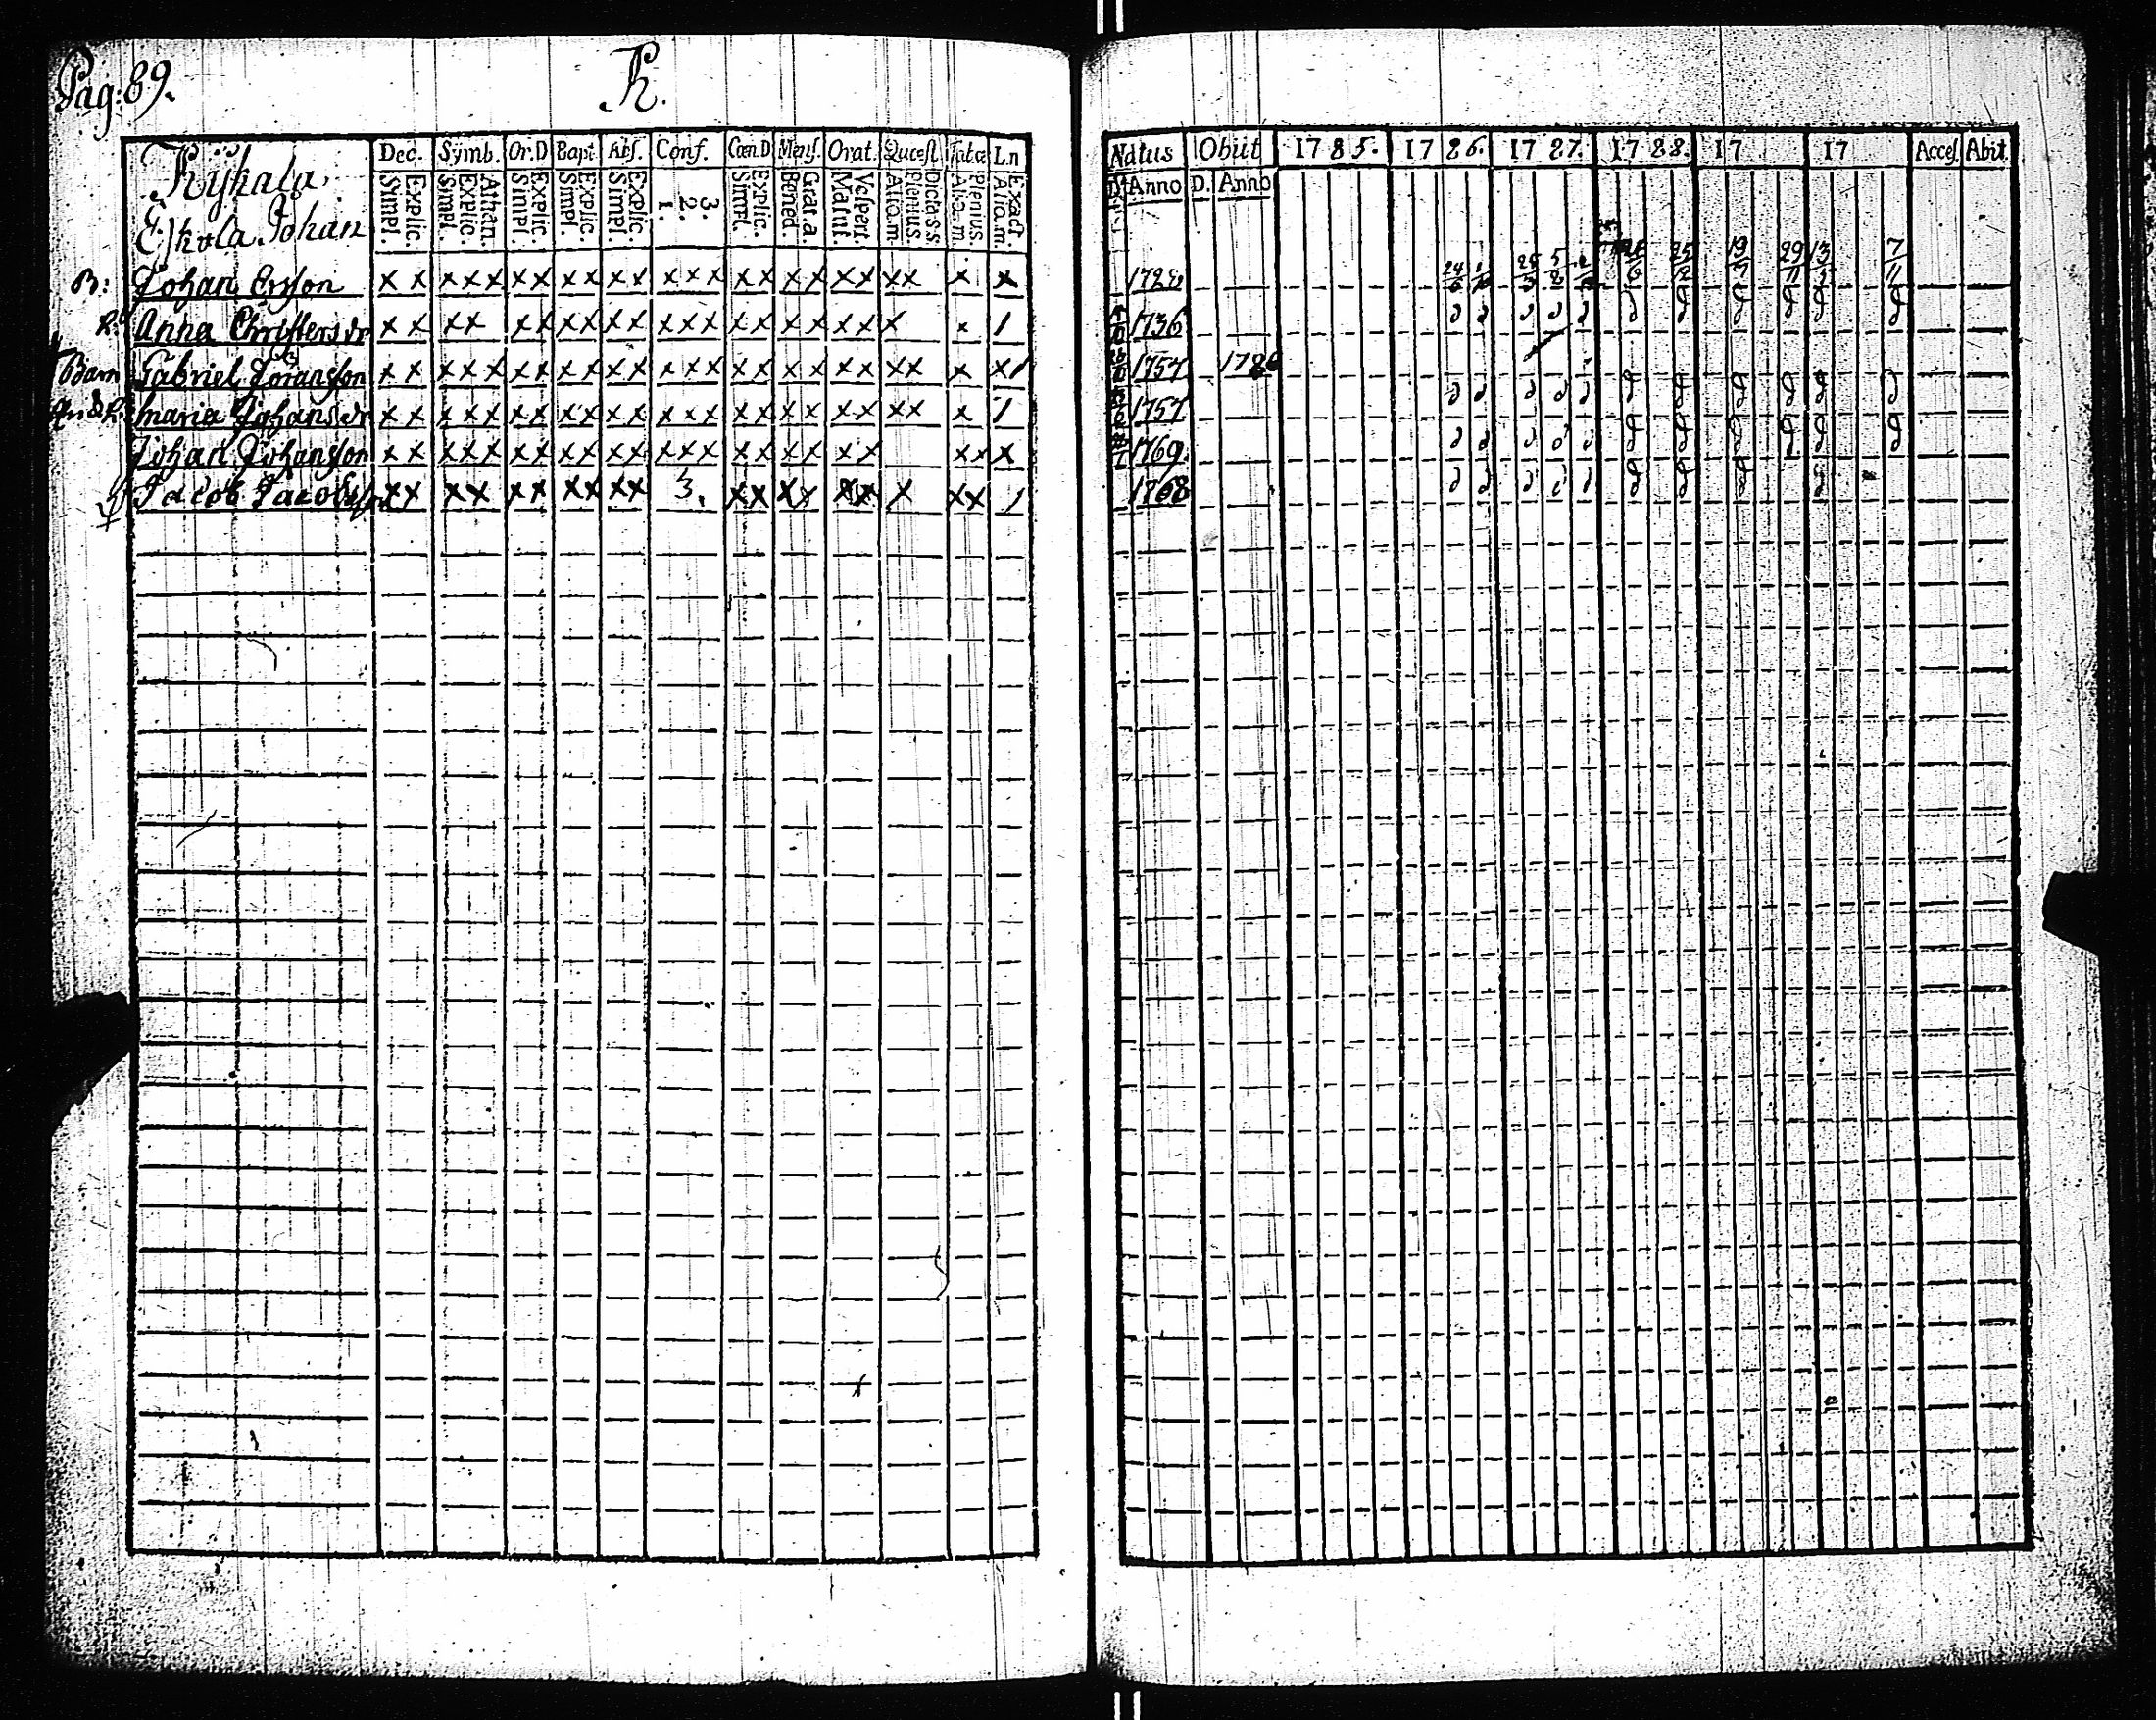 Pag: 89.
K.
Kijkala,
Eskola Johan
Dec. Symb. Or.D Bapt. Abs. Conf. Cœn.D Mens. Orat. Quæst. Tabæ Ln
Simpl. Explic. Simpl. Explic. Athan. Simpl. Explic. Simpl. Explic. Simpl. Explic. 1. 2. 3. Simpl. Explic. Bened. Grat.a. Matut. Vespert. Alio.m. Plenius. Dicta s.s. Alia.m. Plenius. Alia.m. Exact.
B: Johan Ersson x x x x x x x x x x x x x x x x x x x x x x x x
Anna Christersdr x x x x x x x x x x x x x x x x x x x x x 1
Barn Gabriel Joransson x x x x x x x x x x x x x x x x x x x x x x x x 1
Maria Johansdr x x x x x x x x x x x x x x x x x x x x x x x 1
Johan Johansson x x x x x x x x x x x x x x x x x x x x x x x
Jacob Jacobsson x x x x x x x x x x 3. x x x x x x x x x 1
Natus Obiit 1785. 1786. 1787. 1788. 17 17 Acces. Abit.
D. Anno D. Anno
24/6 25/3 5/8 25 19 29/11 13 7/11
1728
1736
1757 1786
1757
1769.
1768